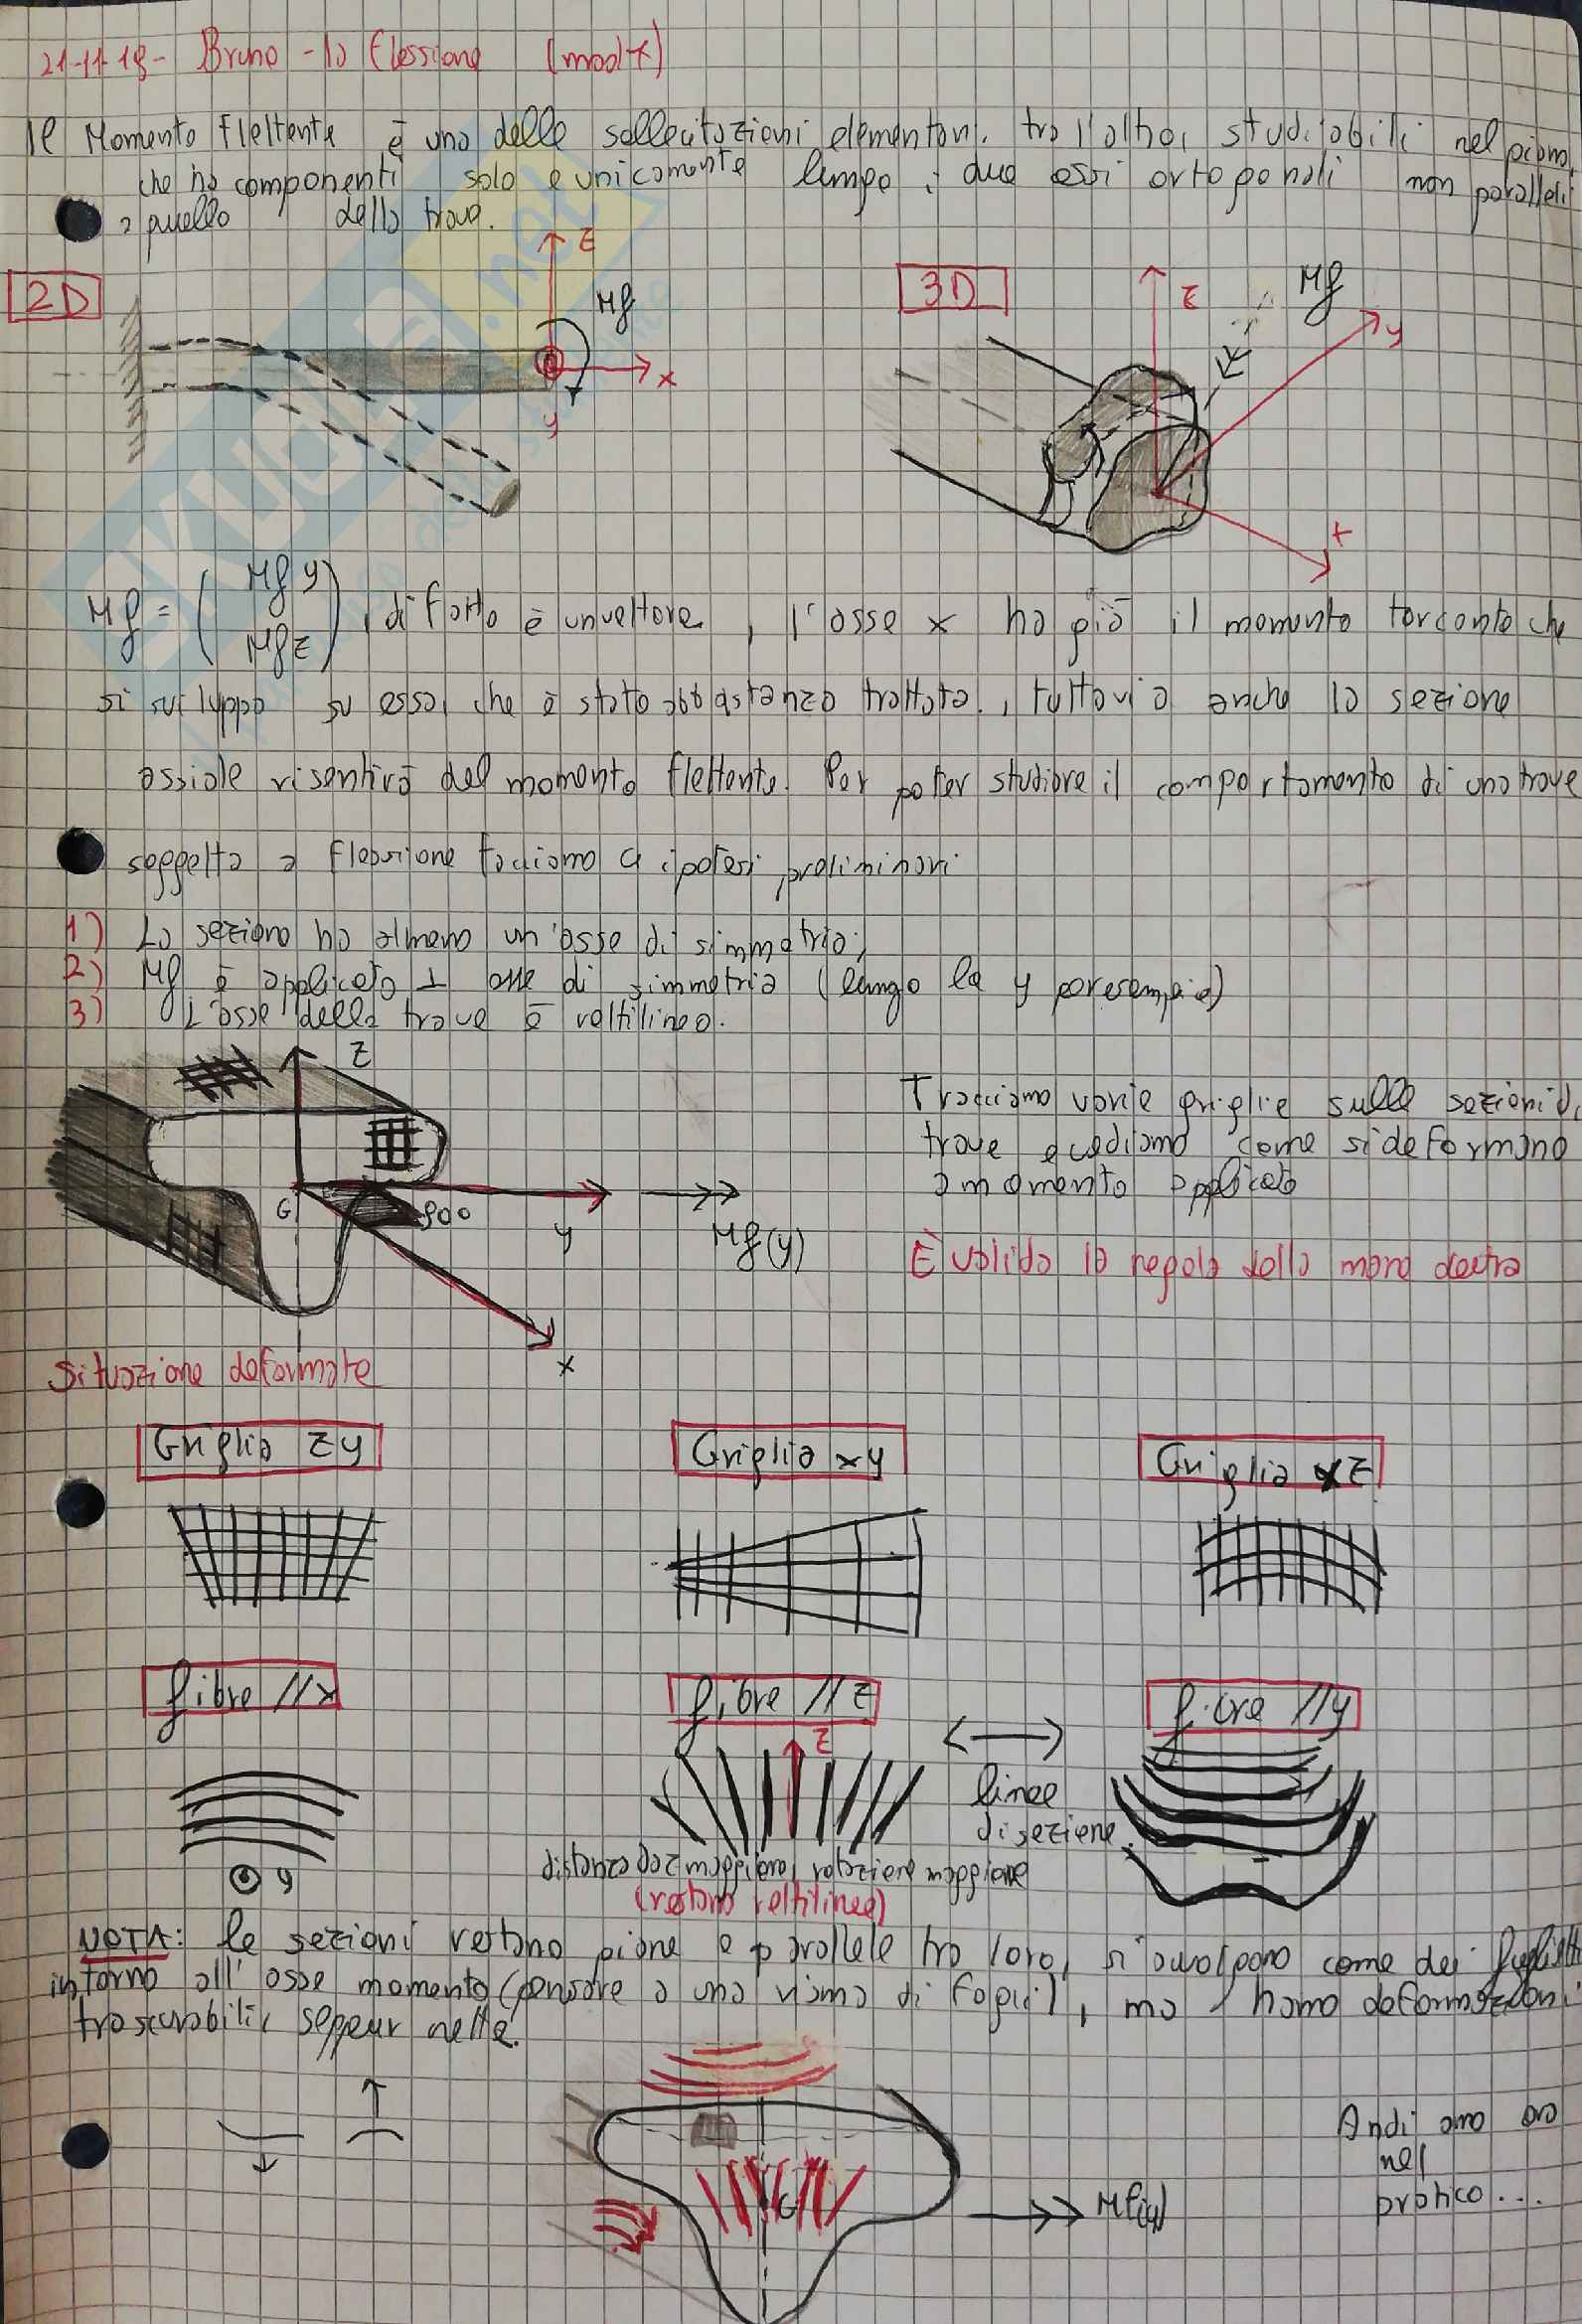 21-11-18- Bruno - la flessione (mod x)
Il Momento flettente è una delle sollecitazioni elementari, tra l'altro, studiabili nel piano,
che ha componenti solo e unicamente lungo i due assi ortogonali non paralleli
a quello della trave.
2D
z
Mf
x
y
3D
z
Mf
y
x
Mf = ( Mfy
Mfz ) , di fatto è un vettore, l'asse x ha già il momento torcente che
si sviluppa su esso, che è stato abbastanza trattato, tuttavia anche la sezione
assiale risentirà del momento flettente. Per poter studiare il comportamento di una trave
soggetta a flessione facciamo ipotesi preliminari
1) La sezione ha almeno un asse di simmetria;
2) Mf è applicato ⊥ asse di simmetria (lungo la y per esempio)
3) L'asse della trave è rettilineo.
z
G
90°
y
Mf(y)
x
Tracciamo varie griglie sulle sezioni di
trave e vediamo come si deformano
a momento applicato
È valida la regola della mano destra
Situazione deformate
Griglia zy
Griglia xy
Griglia xz
fibre //x
fibre //z
fibre //y
z
linee
di sezione
y
distanza da z maggiore, rotazione maggiore
(restano rettilinee)
NOTA: le sezioni restano piane e parallele tra loro, si avvolgono come dei
intorno all'asse momento (pensare a una risma di fogli), ma hanno deformazioni
trascurabili, seppur nette.
G
Mf(y)
Andiamo ora
nel
pratico...